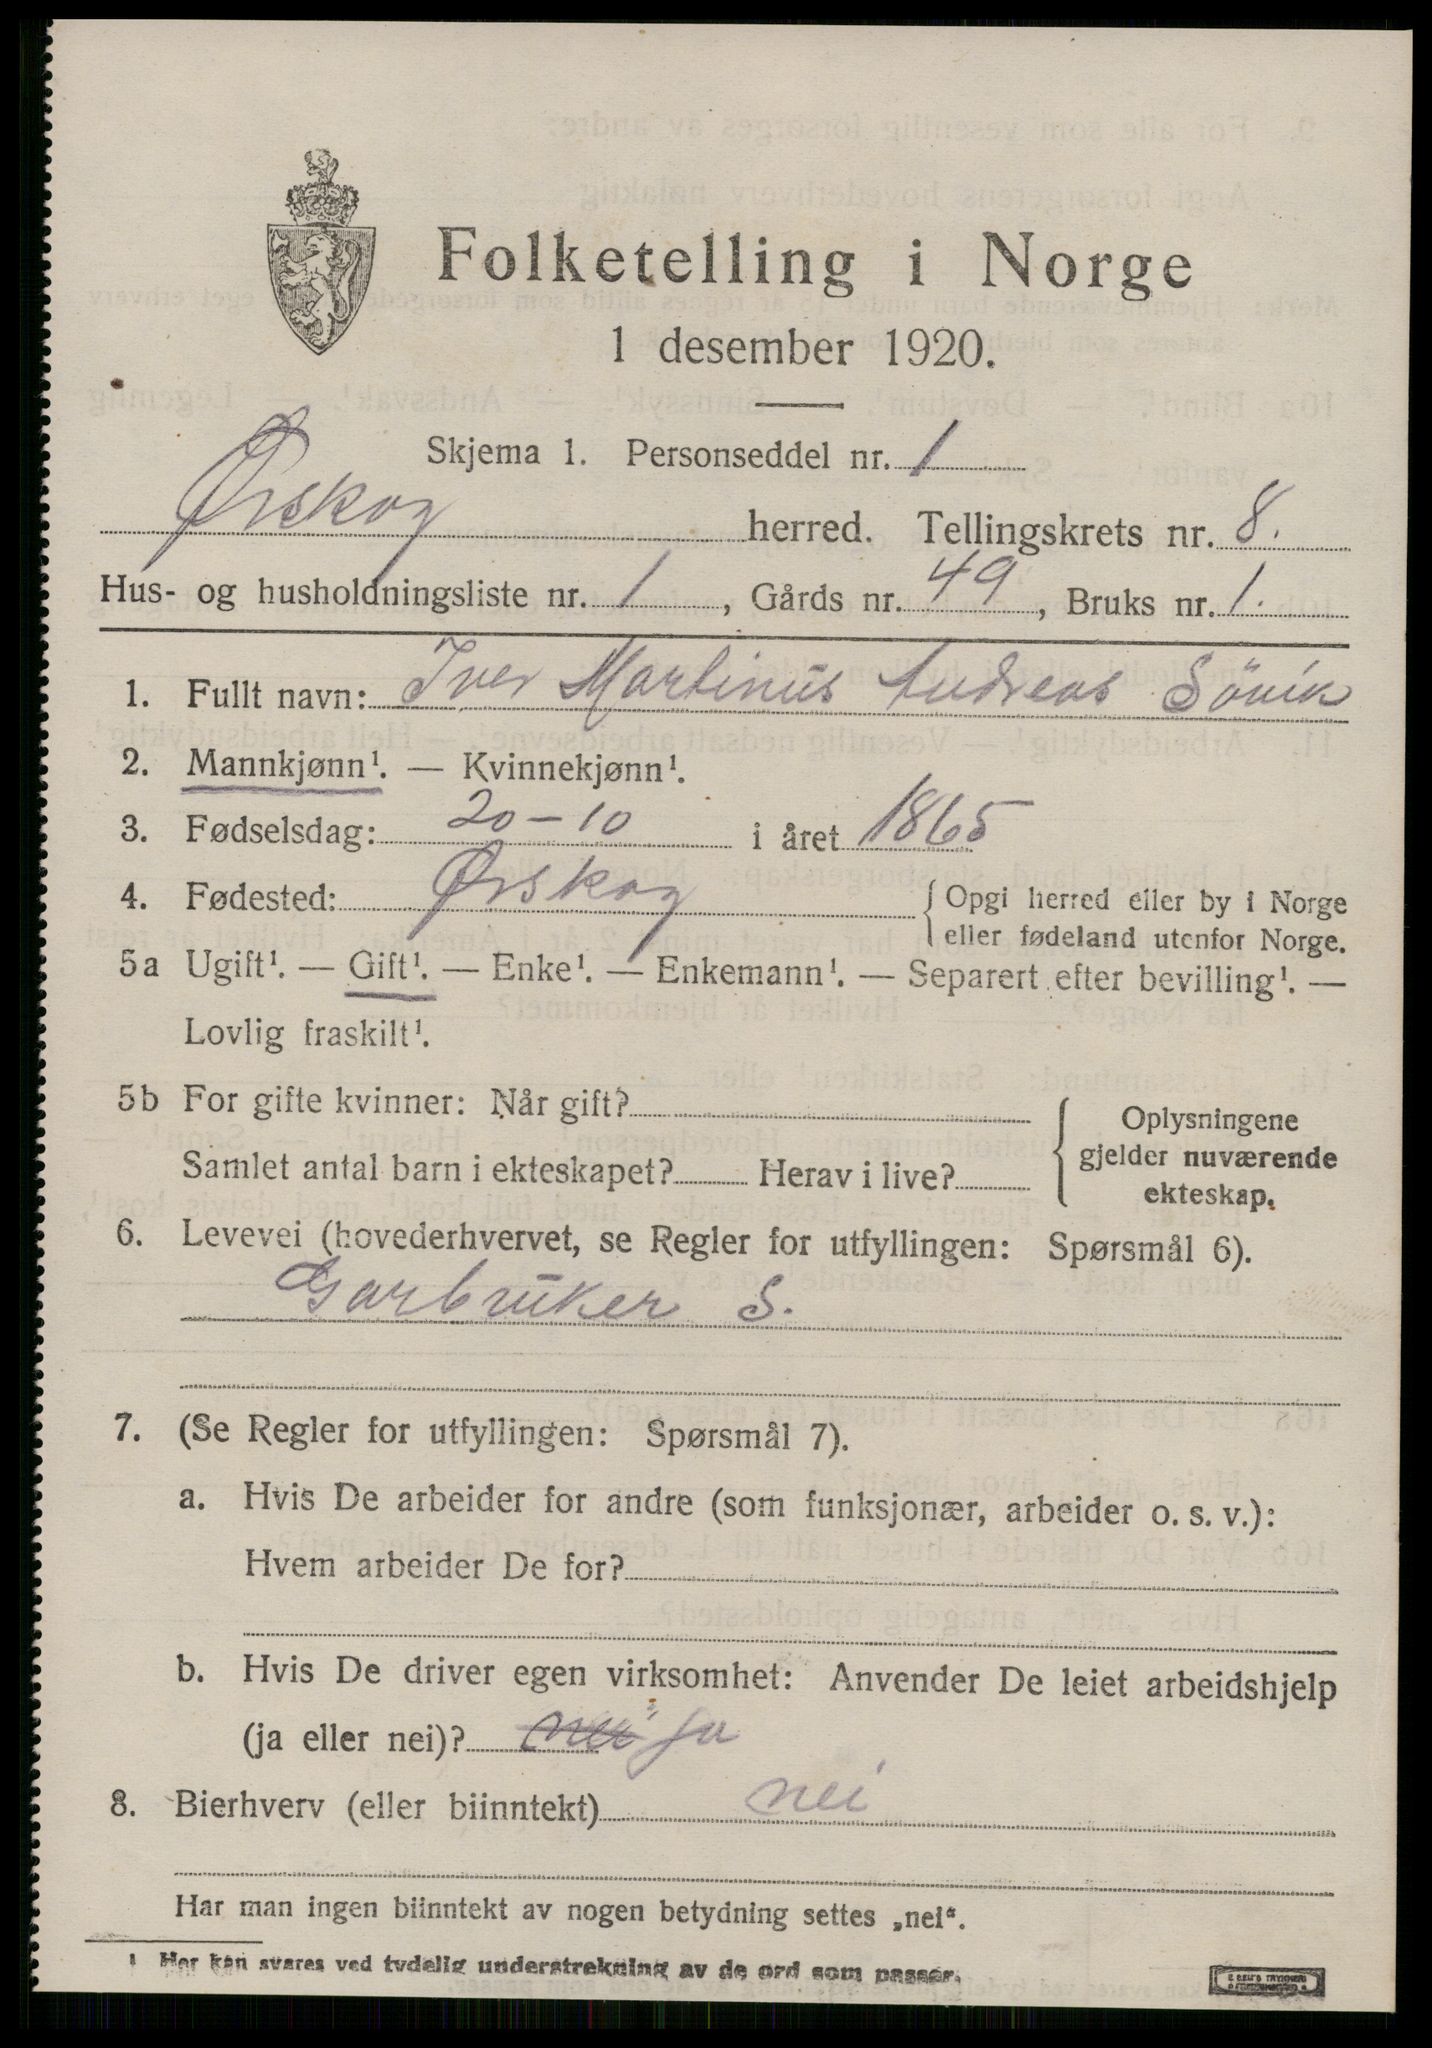 Folketelling i Norge
1 desember 1920.
Skjema 1. Personseddel nr. 1
Ørskog herred. Tellingskrets nr. 8.
Hus- og husholdningsliste nr. 1, Gårds nr. 49, Bruks nr. 1.
1. Fullt navn: Iver Martinus Andreas Sövik
2. Mannkjønn¹. — Kvinnekjønn¹.
3. Fødselsdag: 20-10 i året 1865
4. Fødested: Ørskog { Opgi herred eller by i Norge
eller fødeland utenfor Norge.
5a Ugift¹. — Gift¹. — Enke¹. — Enkemann¹. — Separert efter bevilling¹. —
Lovlig fraskilt¹.
5b For gifte kvinner: Når gift?
Samlet antal barn i ekteskapet? Herav i live?
Oplysningene
gjelder nuværende
ekteskap.
6. Levevei (hovederhvervet, se Regler for utfyllingen: Spørsmål 6).
Garbruker S.
7. (Se Regler for utfyllingen: Spørsmål 7).
a. Hvis De arbeider for andre (som funksjonær, arbeider o. s. v.):
Hvem arbeider De for?
b. Hvis De driver egen virksomhet: Anvender De leiet arbeidshjelp
(ja eller nei)? nei ja
8. Bierhverv (eller biinntekt) nei
Har man ingen biinntekt av nogen betydning settes „nei“.
1 Her kan svares ved tydelig understrekning av de ord som passer.